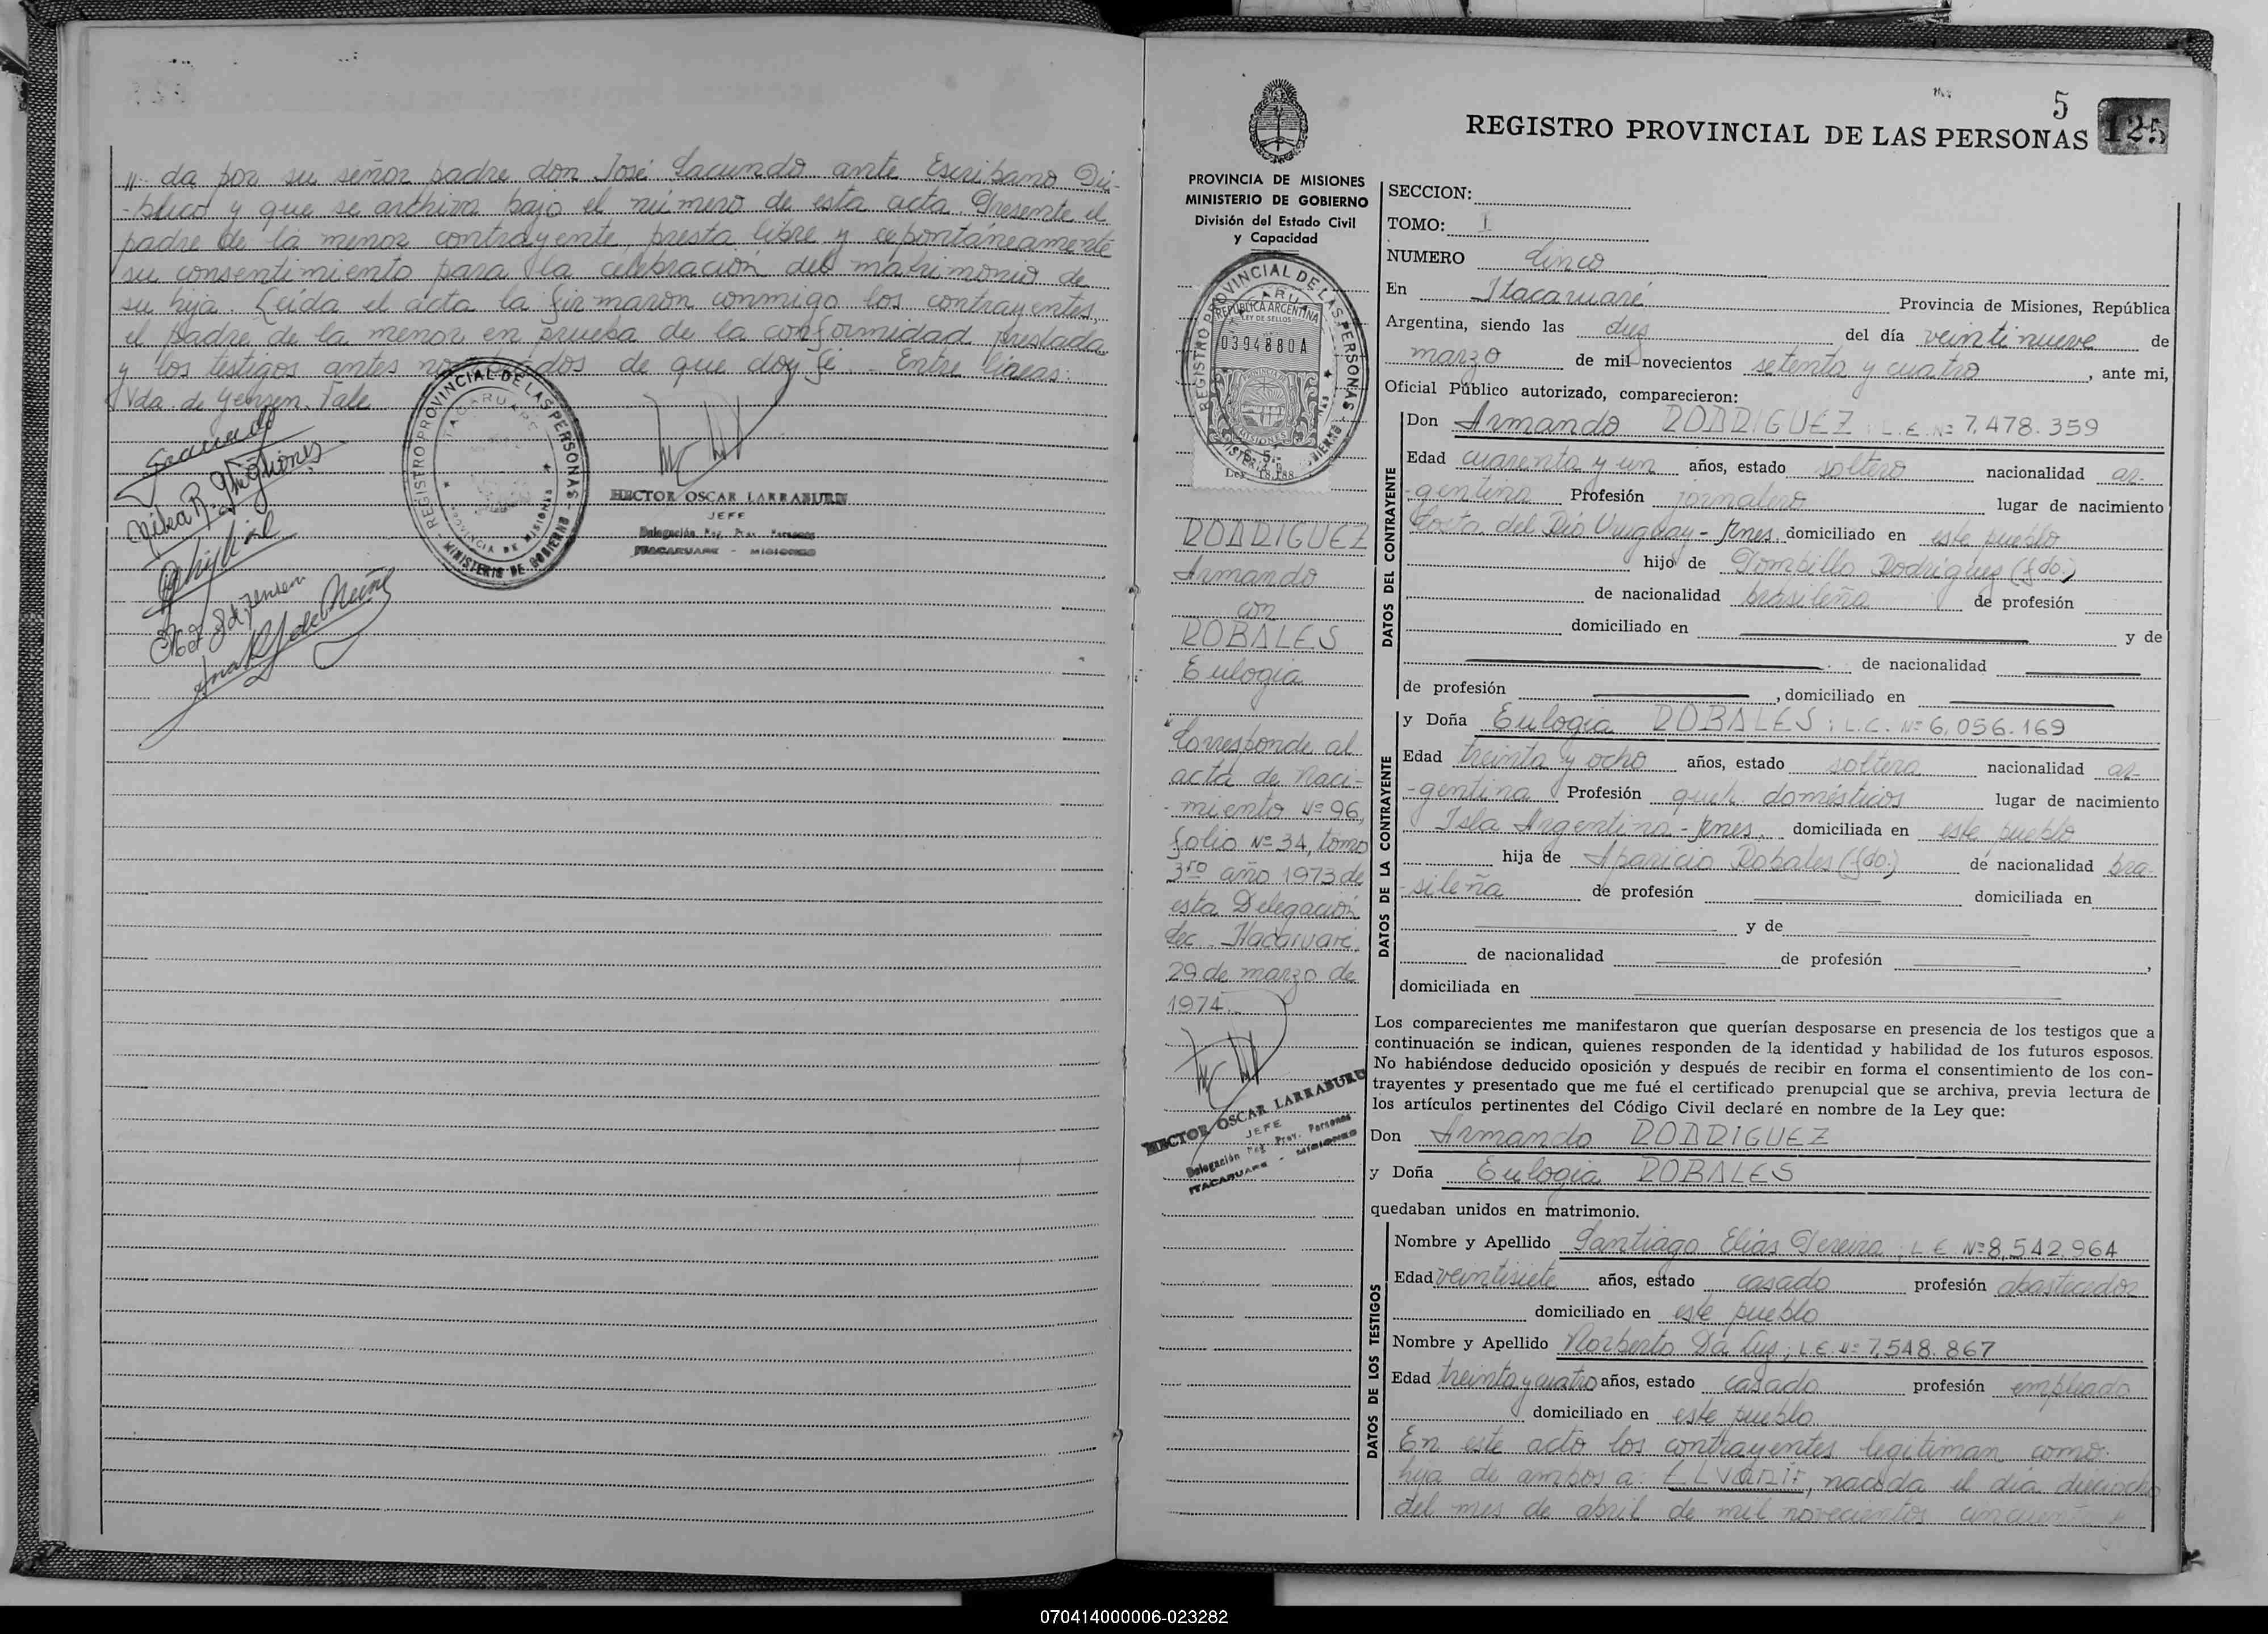 " da por su señor padre don José Sacundo ante Escribano Pú-
-blico y que se archiva bajo el número de esta acta. Presente el
padre de la menor contrayente, presta libre y espontáneamente
su consentimiento para la celebración del matrimonio de
su hija. Leída el acta la firmaron conmigo los contrayentes,
el padre de la menor en prueba de la conformidad prestada
y los testigos antes nombrados de que doy fé. Entre líneas:
Vda. de Jensen. Vale.
REGISTRO PROVINCIAL DE LAS PERSONAS
ITACARUARE
PROVINCIA DE MISIONES
MINISTERIO DE GOBIERNO
HECTOR OSCAR LARRABURU
JEFE
Delegación Reg. Prov. Personas
ITACARUARE - MISIONES
5
125
REGISTRO PROVINCIAL DE LAS PERSONAS
PROVINCIA DE MISIONES
MINISTERIO DE GOBIERNO
División del Estado Civil
y Capacidad
REGISTRO PROVINCIAL DE LAS PERSONAS
REPUBLICA ARGENTINA
LEY DE SELLOS
0394880A
MISIONES
Ley 18.188
RODRIGUEZ
Armando
con
ROBALES
Eulogia
Corresponde al
acta de naci-
-miento Nº 96,
folio Nº 34, tomo
3ro año 1973 de
esta Delegación
Sec. Itacaruaré,
29 de marzo de
1974.
HECTOR OSCAR LARRABURU
JEFE
Delegación Reg. Prov. Personas
ITACARUARE - MISIONES
SECCION:
TOMO: I
NUMERO Cinco
En Itacaruaré Provincia de Misiones, República
Argentina, siendo las diez del día veintinueve de
marzo de mil novecientos setenta y cuatro, ante mi,
Oficial Público autorizado, comparecieron:
DATOS DEL CONTRAYENTE
Don Armando RODRIGUEZ; L.E. Nº 7.478.359
Edad cuarenta y un años, estado soltero nacionalidad ar-
-gentina Profesión jornalero lugar de nacimiento
Costa del Río Uruguay - Mnes. domiciliado en este pueblo
hijo de Pompillo Rodriguez (fdo.)
de nacionalidad brasileña de profesión
domiciliado en y de
de nacionalidad
de profesión , domiciliado en
DATOS DE LA CONTRAYENTE
y Doña Eulogia ROBALES; L.C. Nº 6.056.169
Edad treinta y ocho años, estado soltera nacionalidad ar-
-gentina Profesión queh. domésticos lugar de nacimiento
Isla Argentina - Mnes. domiciliada en este pueblo
hija de Aparicio Robales (fdo.) de nacionalidad bra-
-sileña de profesión domiciliada en
y de
de nacionalidad de profesión ,
domiciliada en
Los comparecientes me manifestaron que querían desposarse en presencia de los testigos que a
continuación se indican, quienes responden de la identidad y habilidad de los futuros esposos.
No habiéndose deducido oposición y después de recibir en forma el consentimiento de los con-
trayentes y presentado que me fué el certificado prenupcial que se archiva, previa lectura de
los artículos pertinentes del Código Civil declaré en nombre de la Ley que:
Don Armando RODRIGUEZ
y Doña Eulogia ROBALES
quedaban unidos en matrimonio.
DATOS DE LOS TESTIGOS
Nombre y Apellido Santiago Elias Pereira; L.E. Nº 8.542.964
Edad veintisiete años, estado casado profesión abastecedor
domiciliado en este pueblo
Nombre y Apellido Norberto Da Luz; L.E. Nº 7.548.867
Edad treinta y cuatro años, estado casado profesión empleado
domiciliado en este pueblo
En este acto los contrayentes legitiman como
hija de ambos a: ELVANIR, nacida el día dieciocho
del mes de abril de mil novecientos cincuenta y
070414000006-023282